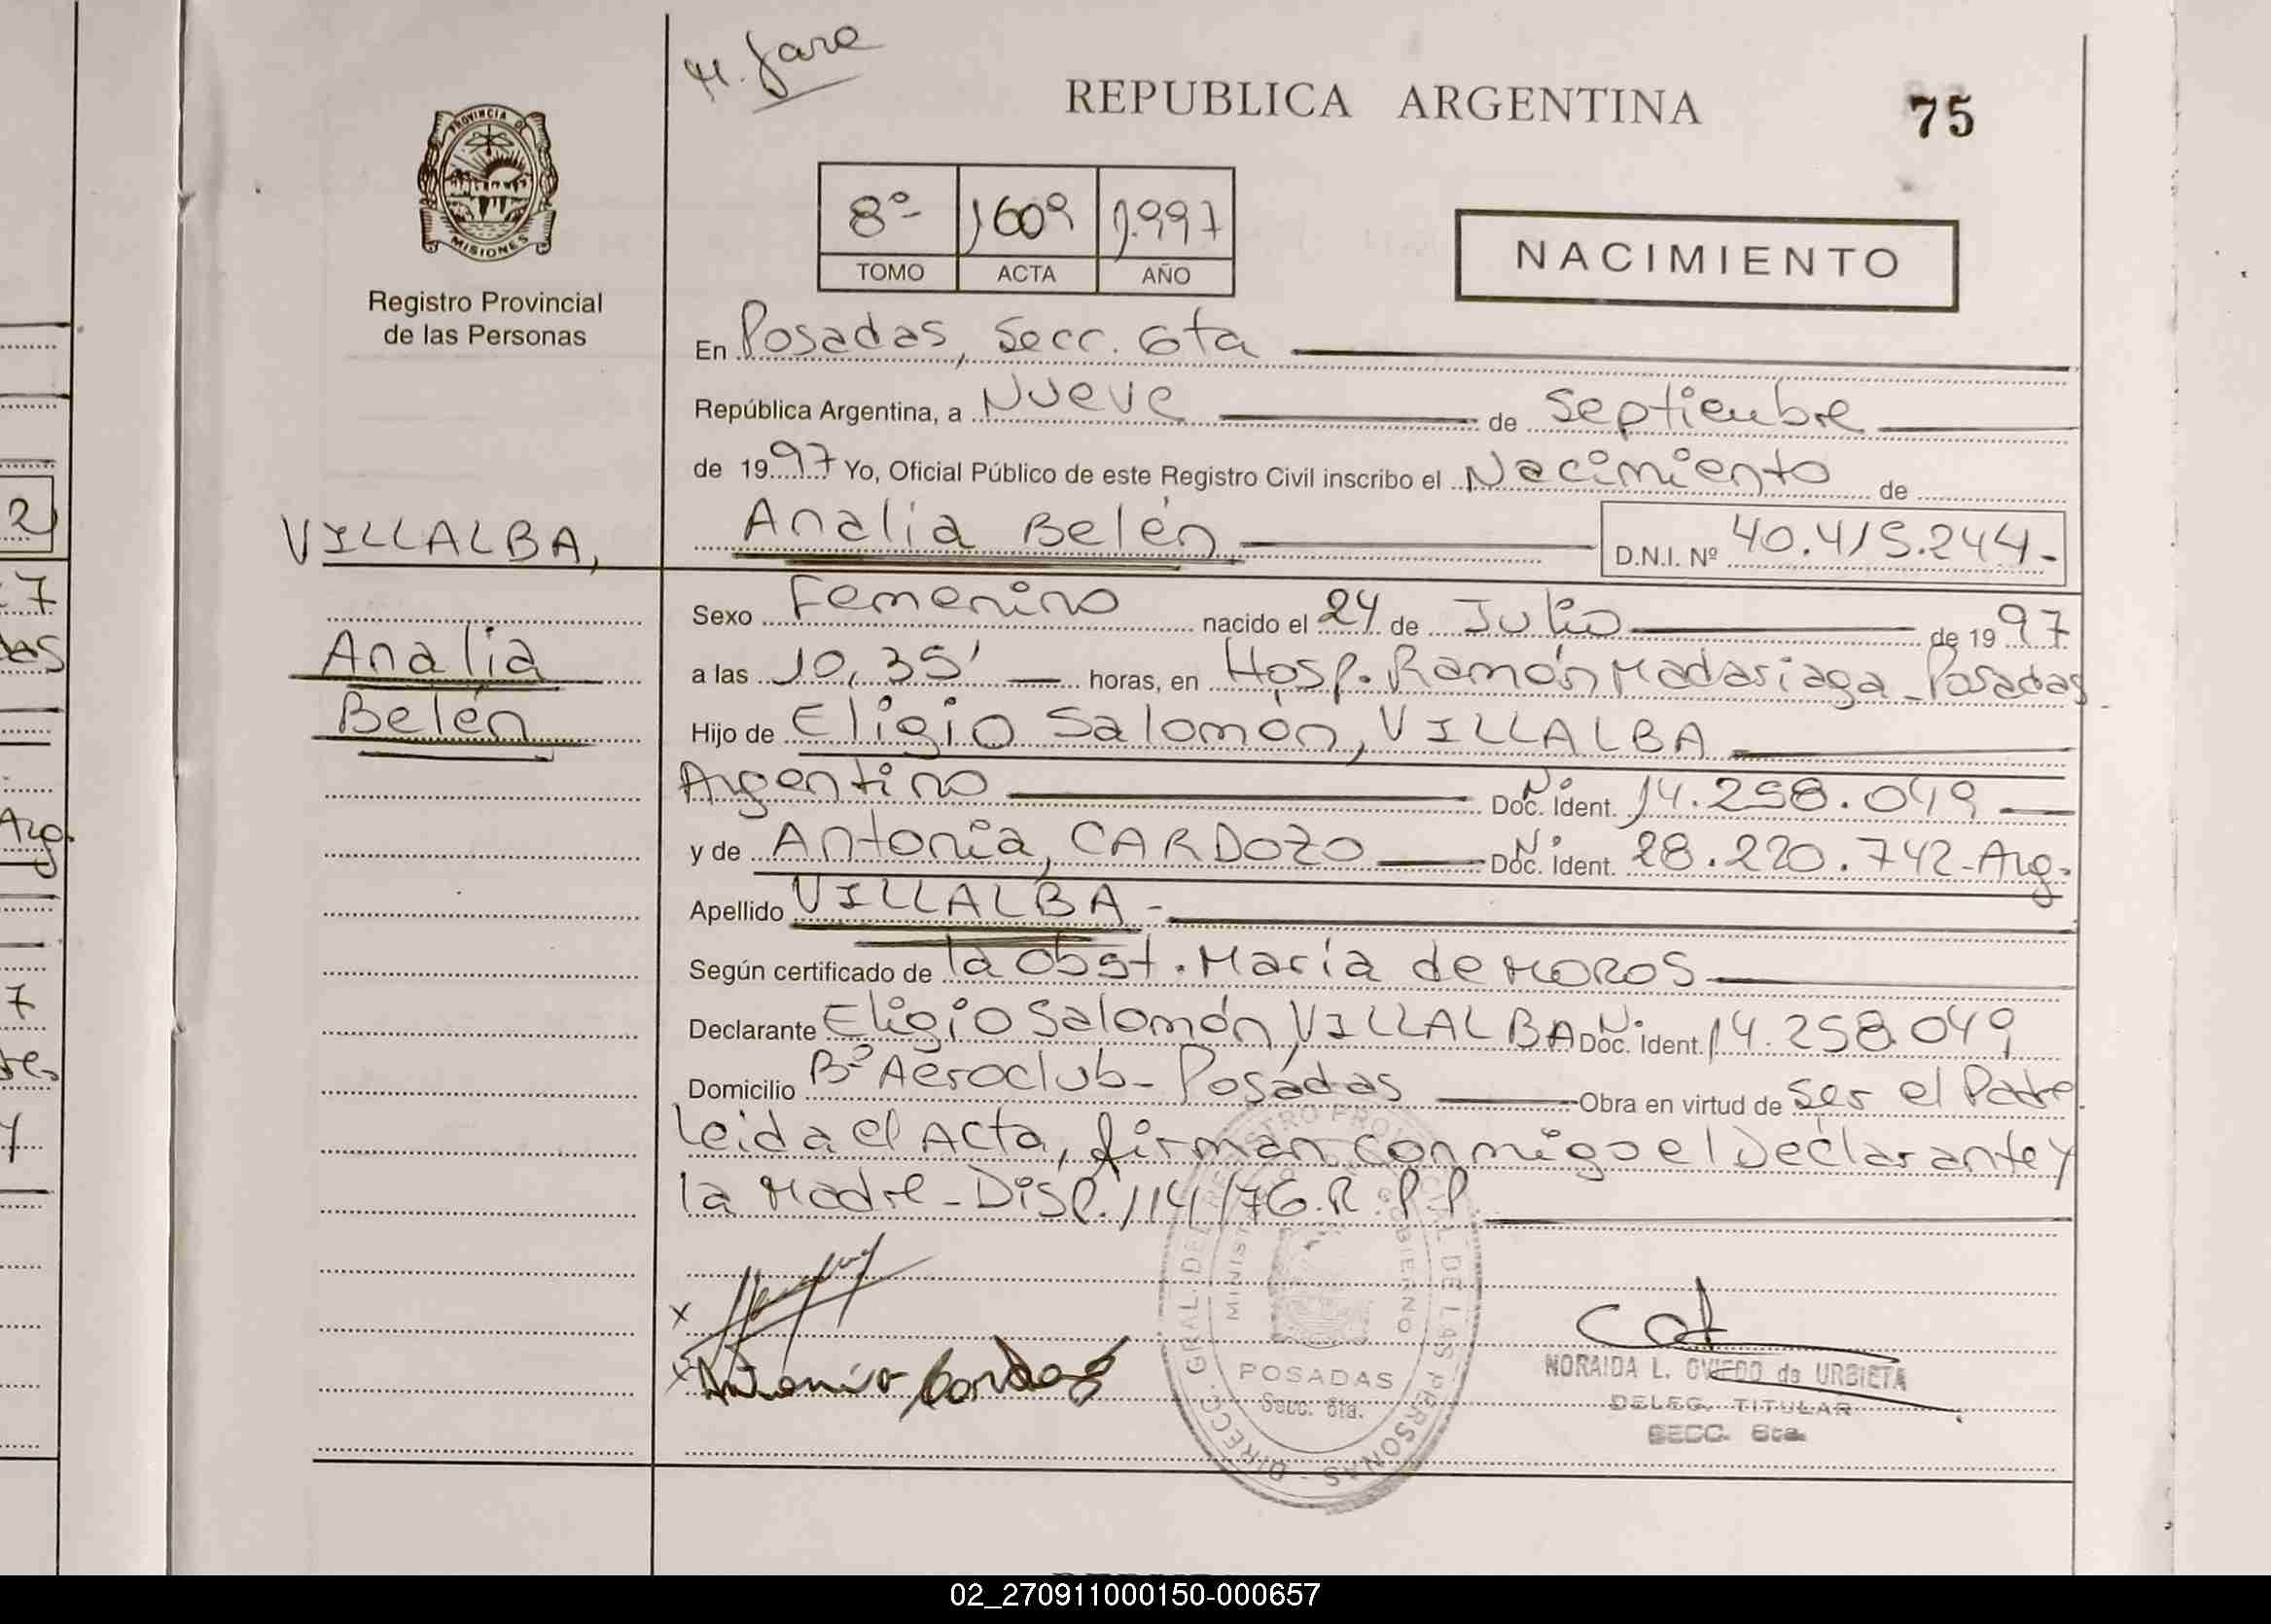 H. Jara
REPUBLICA ARGENTINA
75
PROVINCIA DE
MISIONES
Registro Provincial
de las Personas
8º- 1609 1.997
TOMO ACTA AÑO
NACIMIENTO
En Posadas, Secc. 6ta
República Argentina, a Nueve de Septiembre
de 1997 Yo, Oficial Público de este Registro Civil inscribo el Nacimiento de
VILLALBA,
Analia Belén D.N.I. Nº 40.415.244-
Sexo Femenino nacido el 24 de Julio de 1997
Analia
a las 10,35' horas, en Hosp. Ramón Madariaga - Posadas
Belén
Hijo de Eligio Salomón, VILLALBA
Argentino Doc. Ident. N: 14.258.049
y de Antonia, CARDOZO Doc. Ident. N: 28.220.742-Arg.
Apellido VILLALBA-
Según certificado de la Obst. María de MOROS
Declarante Eligio Salomón, VILLALBA Doc. Ident. N: 14.258.049
Domicilio Bº Aeroclub - Posadas Obra en virtud de Ser el Padre
Leida el Acta, firman conmigo el Declarante y
la Madre - Disp. 114/76.R.P.P
x
x Antonia Cardozo
DIRECC. GRAL. DEL REGISTRO PROVINCIAL DE LAS PERSONAS
MINISTERIO DE GOBIERNO
POSADAS
Secc. 6ta.
NORAIDA L. OVIEDO de URBIETA
DELEG. TITULAR
SECC. 6ta.
02_270911000150-000657